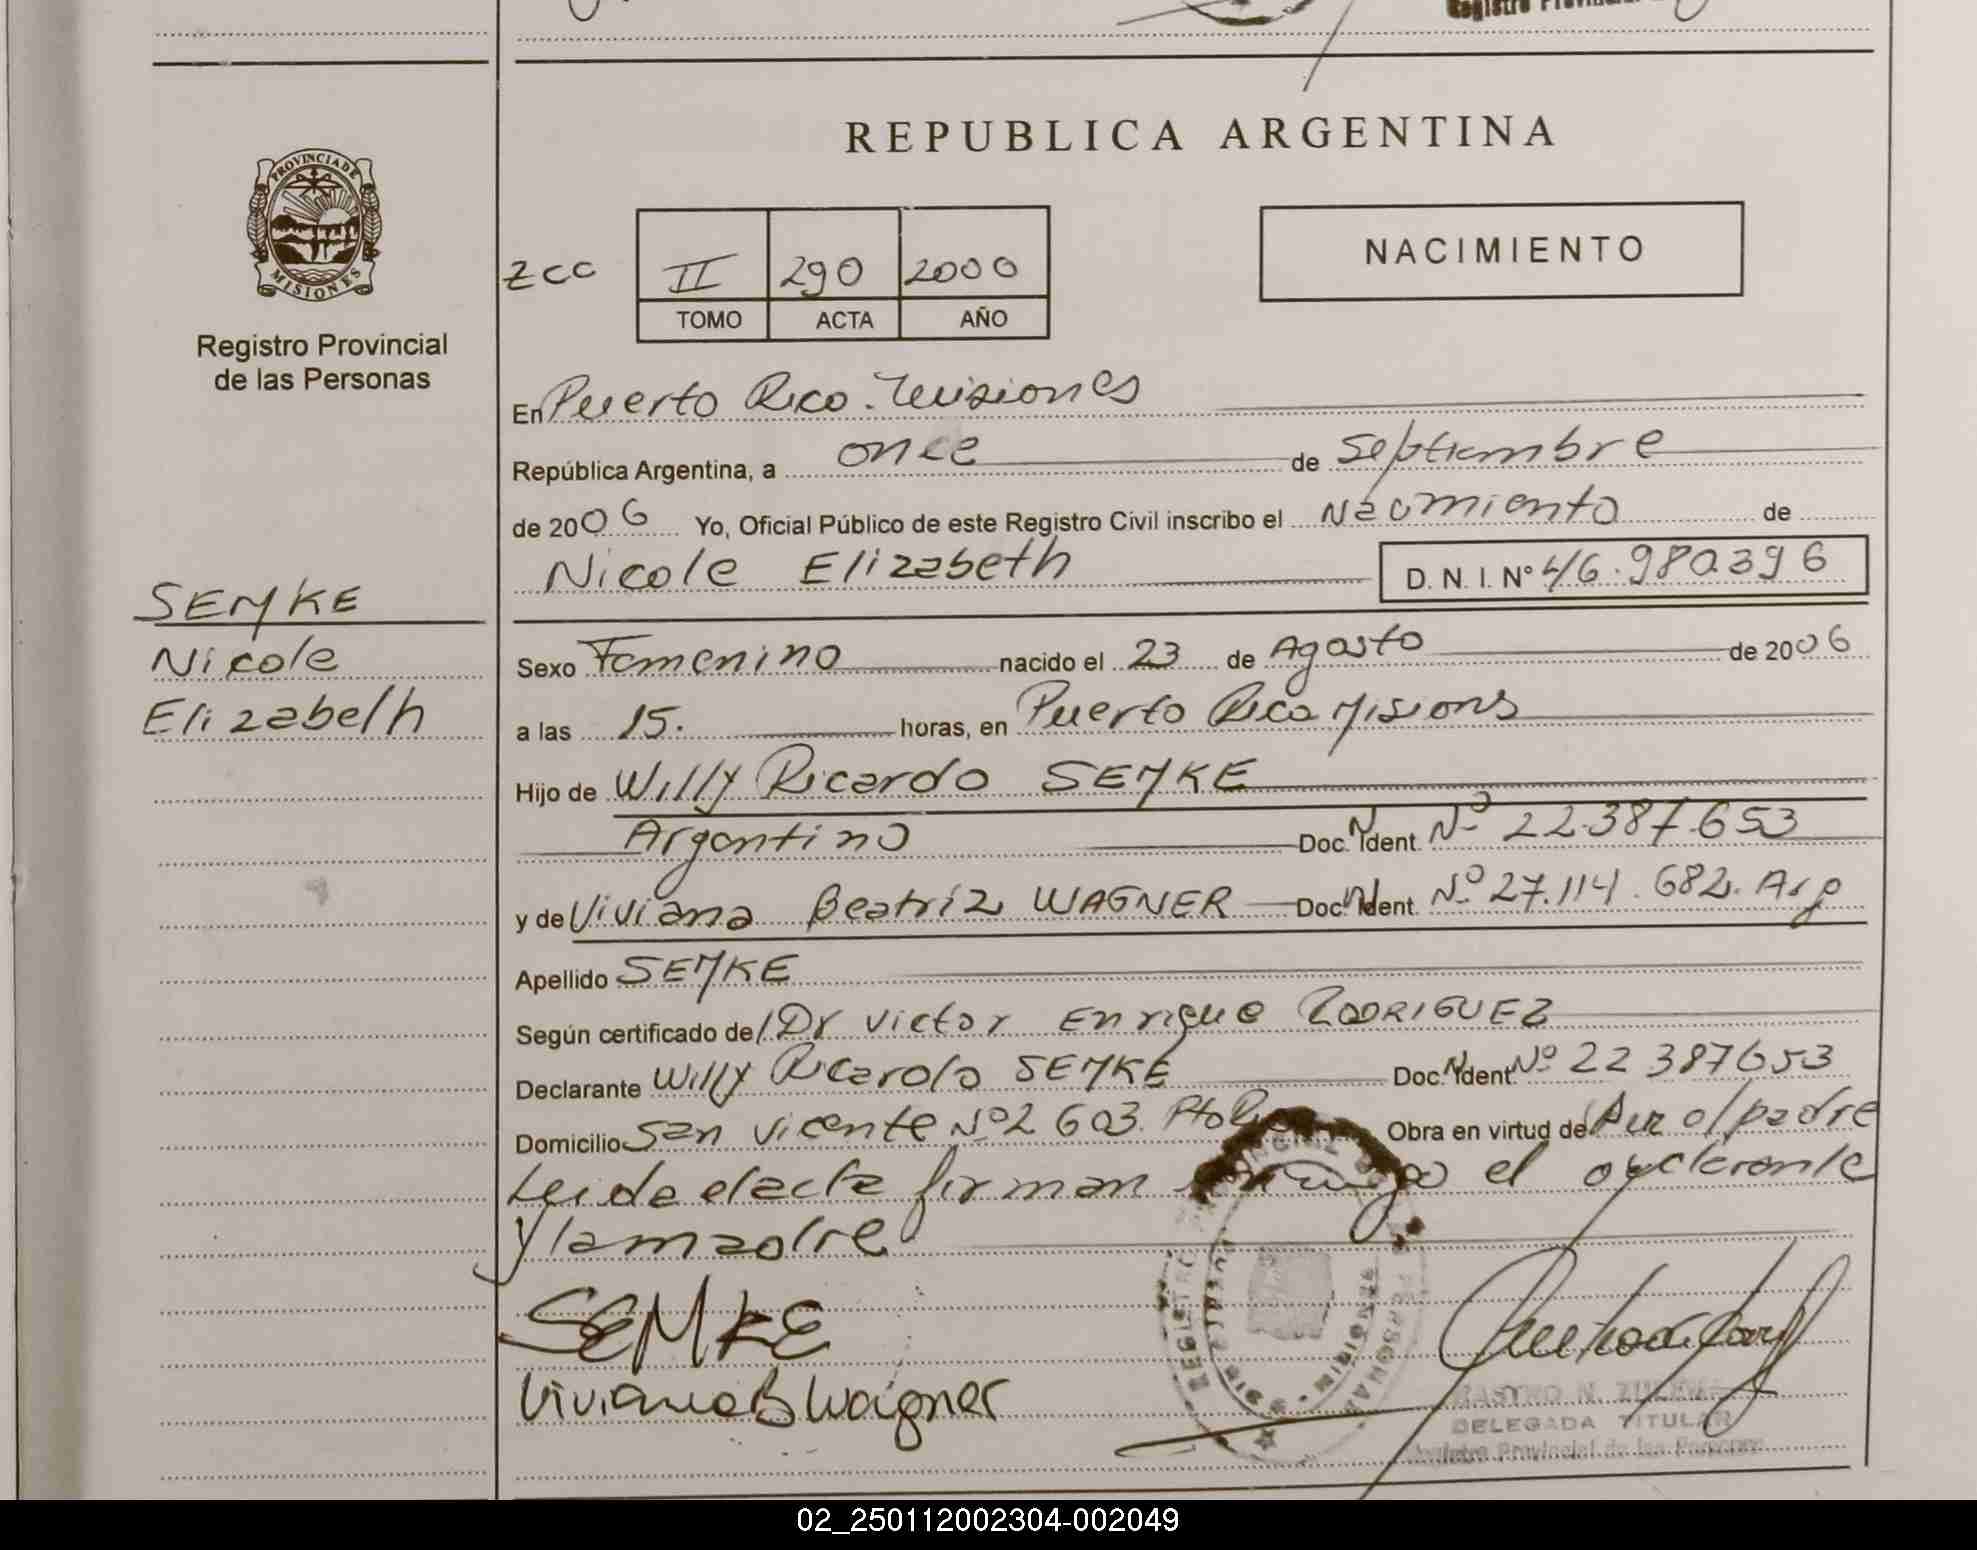 Registro Provincial
REPUBLICA ARGENTINA
PROVINCIA DE
MISIONES
Registro Provincial
de las Personas
zcc II 290 2000
TOMO ACTA AÑO
NACIMIENTO
En Puerto Rico. Misiones
República Argentina, a once de Septiembre
de 2006 Yo, Oficial Público de este Registro Civil inscribo el Nacimiento de
Nicole Elizabeth D. N. I. Nº 46.980.396
SEMKE
Nicole
Elizabeth
Sexo Femenino nacido el 23 de Agosto de 2006
a las 15. horas, en Puerto Rico Misions
Hijo de Willy Ricardo SEMKE
Argentino Doc. Ident. Nº 22.387.653
y de Viviana Beatriz WAGNER Doc. Ident. Nº 27.114.682. Arg
Apellido SEMKE
Según certificado del Dr Victor Enrique RODRIGUEZ
Declarante Willy Ricardo SEMKE Doc. Ident. Nº 22 387653
Domicilio San Vicente Nº 2603. Pto Obra en virtud de Ser el padre
Leida el acta firman el declarante
y la madre
SEMKE
Viviana B Wagner
REGISTRO PERSONAS
DELEGADA TITULAR
Registro Provincial de las Personas
02_250112002304-002049